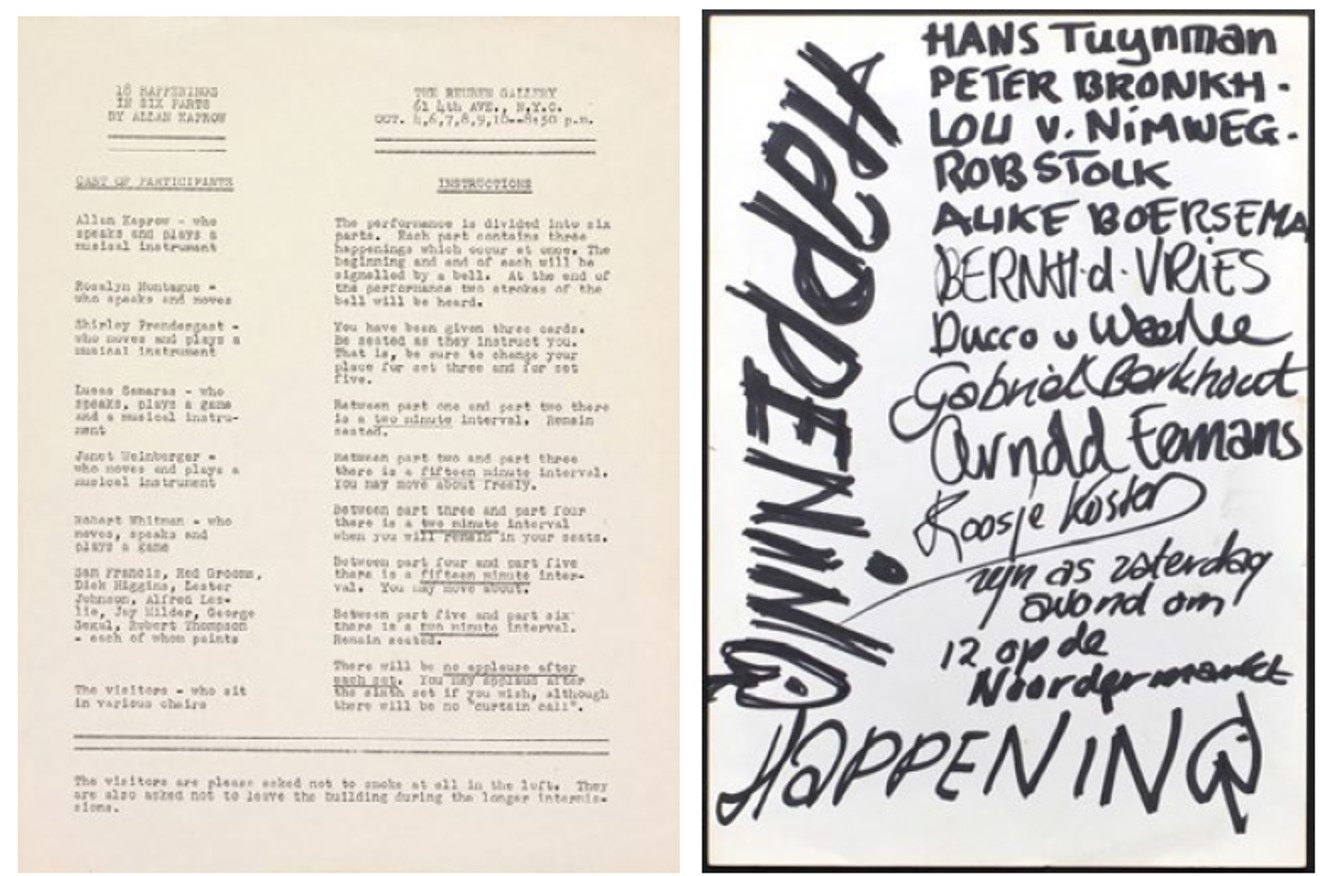 18 HAPPENINGS
IN SIX PARTS
BY ALLAN KAPROW
THE REUBEN GALLERY
61 4th AVE., N.Y.C.
OCT. 4,6,7,8,9,10--8:30 p.m.
CAST OF PARTICIPANTS
Allan Kaprow - who
speaks and plays a
musical instrument
Rosalyn Montague -
who speaks and moves
Shirley Prendergast -
who moves and plays a
musical instrument
Lucas Samaras - who
speaks, plays a game
and a musical instru-
ment
Janet Weinberger -
who moves and plays a
musical instrument
Robert Whitman - who
moves, speaks and
plays a game
Sam Francis, Red Grooms,
Dick Higgins, Lester
Johnson, Alfred Les-
lie, Jay Milder, George
Segal, Robert Thompson
- each of whom paints
The visitors - who sit
in various chairs
INSTRUCTIONS
The performance is divided into six
parts. Each part contains three
happenings which occur at once. The
beginning and end of each will be
signalled by a bell. At the end of
the performance two strokes of the
bell will be heard.
You have been given three cards.
Be seated as they instruct you.
That is, be sure to change your
place for set three and for set
five.
Between part one and part two there
is a two minute interval. Remain
seated.
Between part two and part three
there is a fifteen minute interval.
You may move about freely.
Between part three and part four
there is a two minute interval
when you will remain in your seats.
Between part four and part five
there is a fifteen minute inter-
val. You may move about.
Between part five and part six
there is a two minute interval.
Remain seated.
There will be no applause after
each set. You may applaud after
the sixth set if you wish, although
there will be no "curtain call".
The visitors are please asked not to smoke at all in the loft. They
are also asked not to leave the building during the longer intermis-
sions.
HAPPENING
HANS Tuynman
PETER BRONKH.
LOU v. NiMWEG.
ROB STOLK
ALIKE BOERSEMA
BERNH. d. VRIES
Ducco v Weerlee
Gabriel Berkhout
Arnold Eemans
Koosje Koster
zijn as zaterdag
avond om
12 op de
Noordermarkt
HAPPENING